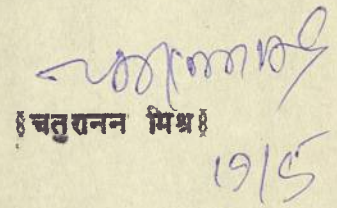 [चतुरानन मिश्र]
19/5